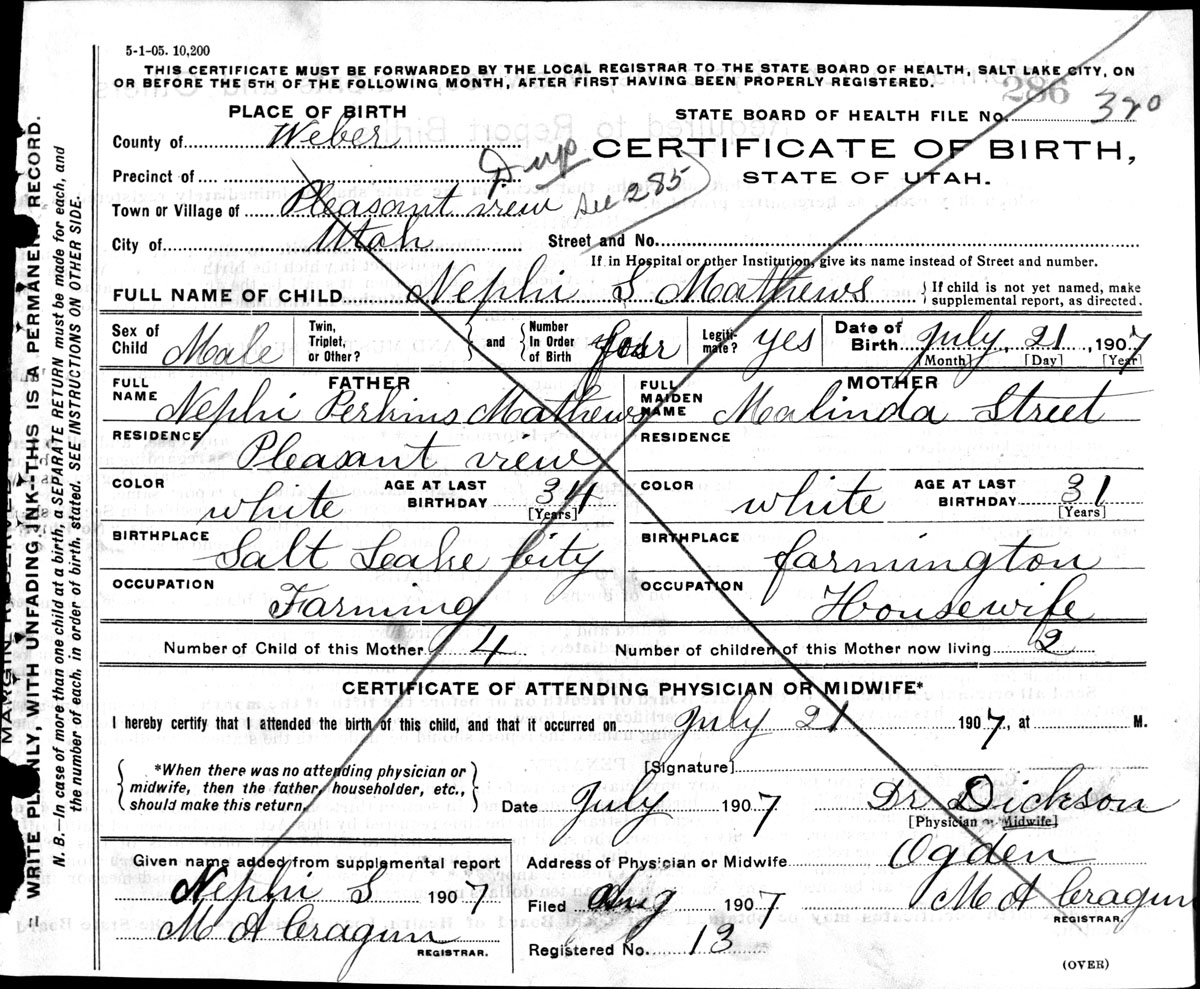 5-1-05. 10,200
THIS CERTIFICATE MUST BE FORWARDED BY THE LOCAL REGISTRAR TO THE STATE BOARD OF HEALTH, SALT LAKE CITY, ON
OR BEFORE THE 5TH OF THE FOLLOWING MONTH, AFTER FIRST HAVING BEEN PROPERLY REGISTERED.
286
PLACE OF BIRTH
STATE BOARD OF HEALTH FILE No. 320
County of Weber
CERTIFICATE OF BIRTH,
STATE OF UTAH.
Precinct of
Dup
see 285
Town or Village of Pleasant view
City of Utah Street and No.
If in Hospital or other Institution, give its name instead of Street and number.
FULL NAME OF CHILD Nephi S Mathews { If child is not yet named, make supplemental report, as directed.
Sex of Child Male Twin, Triplet, or Other? } and { Number In Order of Birth four Legiti-mate? yes Date of Birth July, 21, 1907
[Month] [Day] [Year]
FATHER MOTHER
FULL NAME Nephi Perkins Mathews FULL MAIDEN NAME Malinda Street
RESIDENCE Pleasant view RESIDENCE
COLOR white AGE AT LAST BIRTHDAY 34 [Years] COLOR white AGE AT LAST BIRTHDAY 31 [Years]
BIRTHPLACE Salt Leake City BIRTHPLACE farmington
OCCUPATION Farming OCCUPATION Housewife
Number of Child of this Mother 4 Number of children of this Mother now living 2
CERTIFICATE OF ATTENDING PHYSICIAN OR MIDWIFE*
I hereby certify that I attended the birth of this child, and that it occurred on July 21 1907, at M.
{ *When there was no attending physician or midwife, then the father, householder, etc., should make this return. }
[Signature]
Date July 1907 Dr Dickson
[Physician or Midwife]
Given name added from supplemental report
Nephi S 1907
M A Cragun
REGISTRAR.
Address of Physician or Midwife Ogden
Filed Aug 1907 M A Cragun
REGISTRAR.
Registered No. 13
(OVER)
WRITE PLAINLY, WITH UNFADING INK--THIS IS A PERMANENT RECORD.
N. B.—In case of more than one child at a birth, a SEPARATE RETURN must be made for each, and
the number of each, in order of birth, stated. SEE INSTRUCTIONS ON OTHER SIDE.